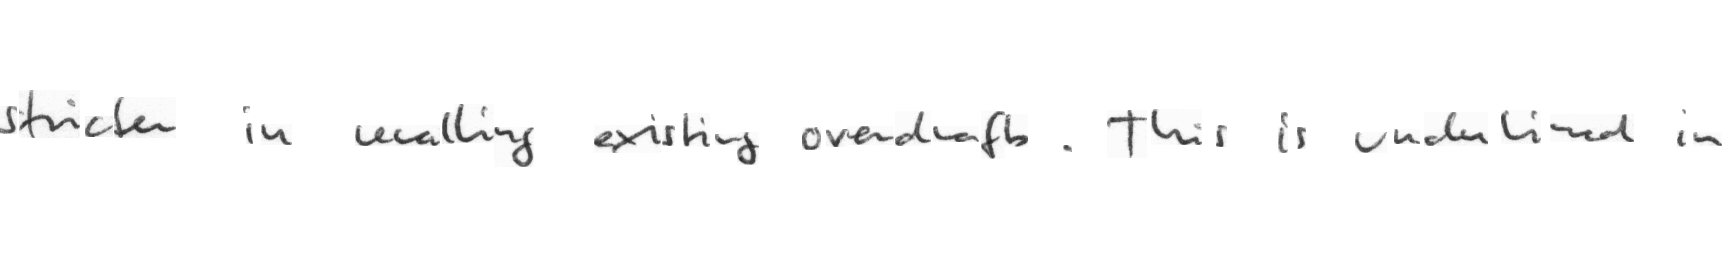 stricter in recalling existing overdrafts. This is underlined in